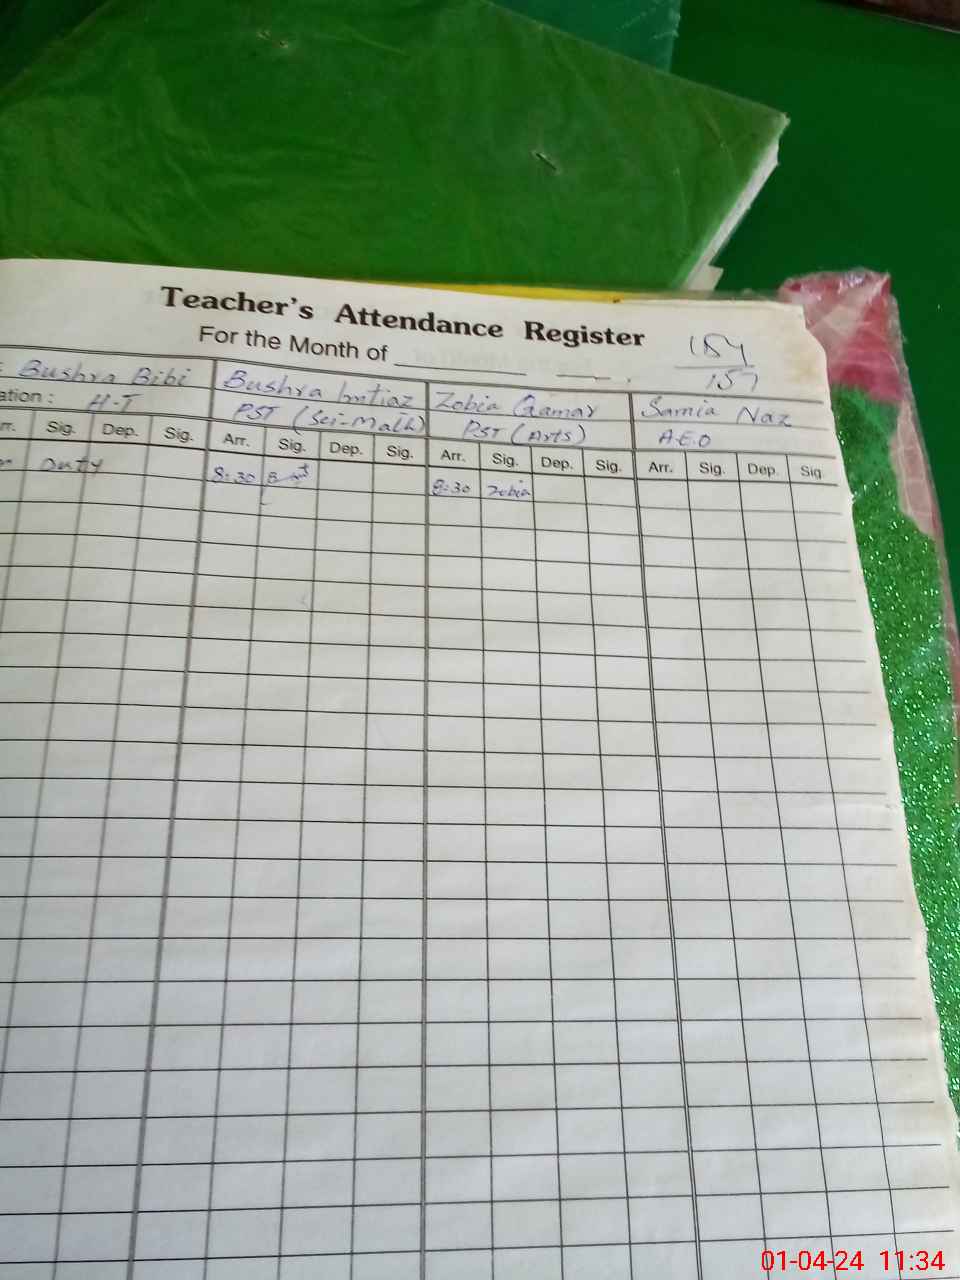 Teacher's Attendance Register
For the Month of
154
157
Bushra Bibi Bushra Imtiaz Zobia Qamar Samia Naz
ation : H-T PST (Sci-Math) PST (Arts) A.E.O
rr. Sig. Dep. Sig. Arr. Sig. Dep. Sig. Arr. Sig. Dep. Sig. Arr. Sig. Dep. Sig.
Duty 8:30 8:30 Zobia
01-04-24 11:34